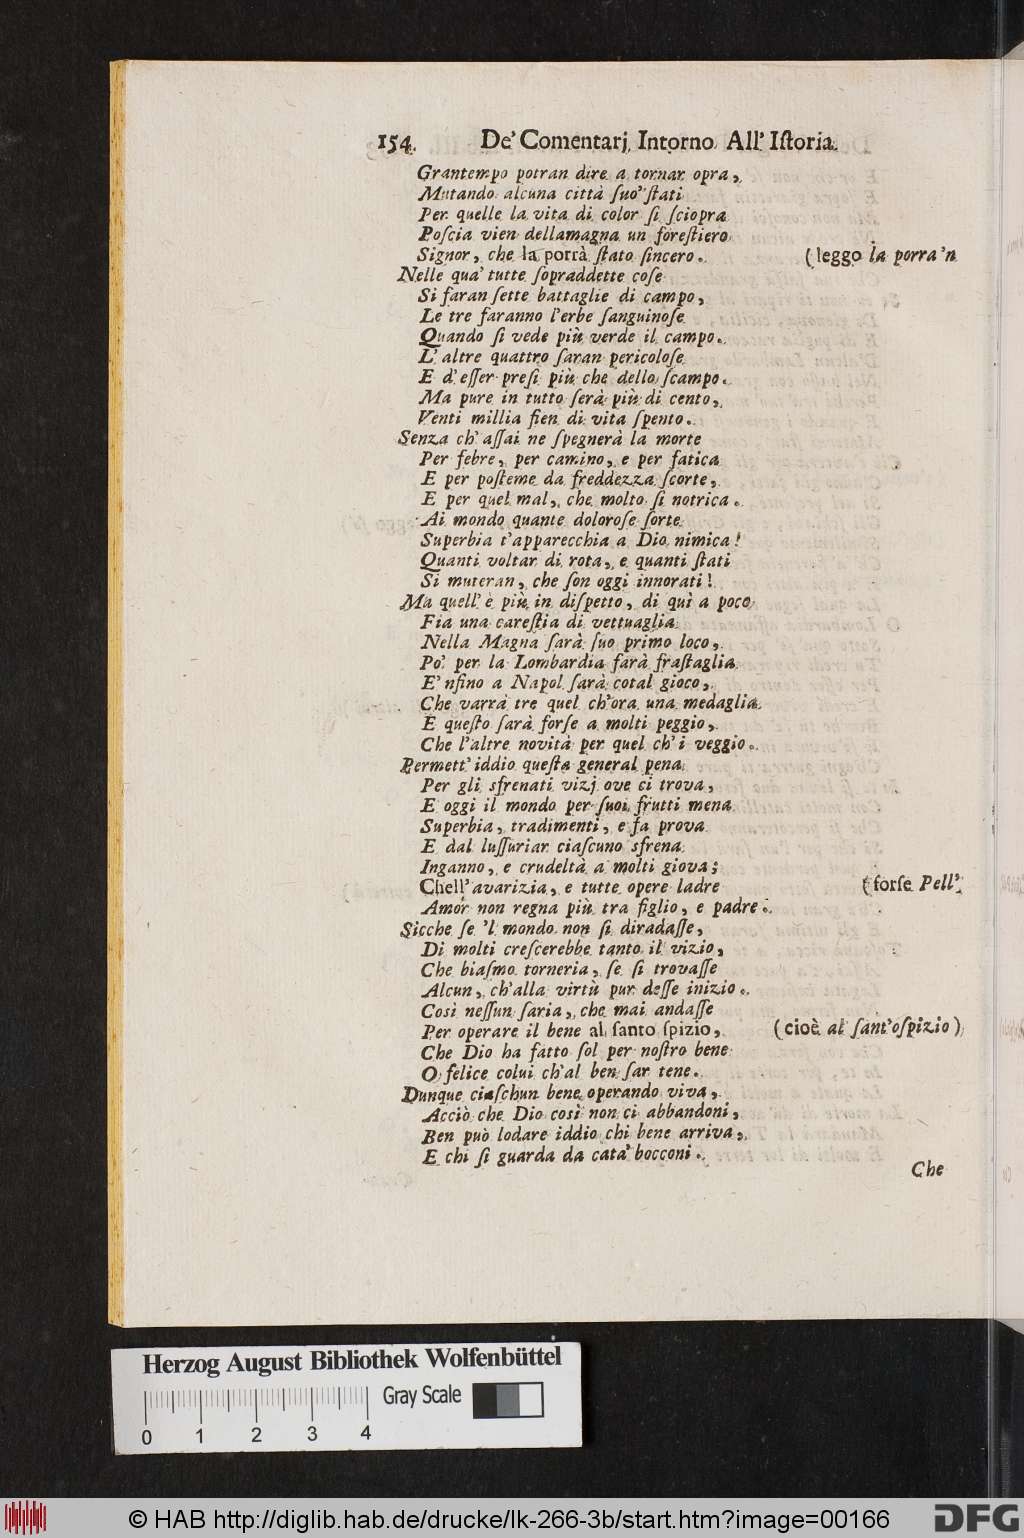 154. De' Comentarj Intorno All' Iſtoria.
Grantempo potran dire a tornar opra,
Mutando alcuna città ſuo' ſtati
Per quelle la vita di color ſi ſciopra
Poſcia vien dellamagna un foreſtiero
Signor, che la porrà ſtato ſincero. (leggo la porra'n
Nelle qua' tutte ſopraddette coſe
Si faran ſette battaglie di campo,
Le tre faranno l'erbe ſanguinoſe
Quando ſi vede più verde il campo.
L' altre quattro ſaran pericoloſe
E d'eſſer preſi più che dello ſcampo.
Ma pure in tutto ſerà più di cento,
Venti millia fien di vita ſpento.
Senza ch' aſſai ne ſpegnerà la morte
Per febre, per camino, e per fatica
E per poſteme da freddezza ſcorte,
E per quel mal, che molto ſi notrica.
Ai mondo quante doloroſe ſorte
Superbia t'apparecchia a Dio nimica!
Quanti voltar di rota, e quanti ſtati
Si muteran, che ſon oggi innorati!
Ma quell' è più in diſpetto, di quì a poco
Fia una careſtia di vettuaglia
Nella Magna ſarà ſuo primo loco,
Po' per la Lombardia farà fraſtaglia
E' nfino a Napol ſarà cotal gioco,
Che varrà tre quel ch'ora una medaglia.
E queſto ſarà forſe a molti peggio,
Che l'altre novità per quel ch' i veggio.
Permett' iddio queſta general pena
Per gli sfrenati vizj ove ci trova,
E oggi il mondo per ſuoi frutti mena
Superbia, tradimenti, e fa prova
E dal luſſuriar ciaſcuno sfrena
Inganno, e crudeltà a molti giova;
Chell' avarizia, e tutte opere ladre (forſe Pell'
Amor non regna più tra figlio, e padre.
Sicche ſe 'l mondo non ſi diradaſſe,
Di molti creſcerebbe tanto il vizio,
Che biaſmo torneria, ſe ſi trovaſſe
Alcun, ch'alla virtù pur deſſe inizio.
Così neſſun ſaria, che mai andaſſe
Per operare il bene al ſanto ſpizio, (cioè al ſant'oſpizio)
Che Dio ha fatto ſol per noſtro bene
O felice colui ch'al ben far tene.
Dunque ciaſchun bene operando viva,
Acciò che Dio così non ci abbandoni,
Ben può lodare iddio chi bene arriva,
E chi ſi guarda da cata' bocconi.
Che
Herzog August Bibliothek Wolfenbüttel
Gray Scale
0 1 2 3 4
© HAB http://diglib.hab.de/drucke/lk-266-3b/start.htm?image=00166
DFG